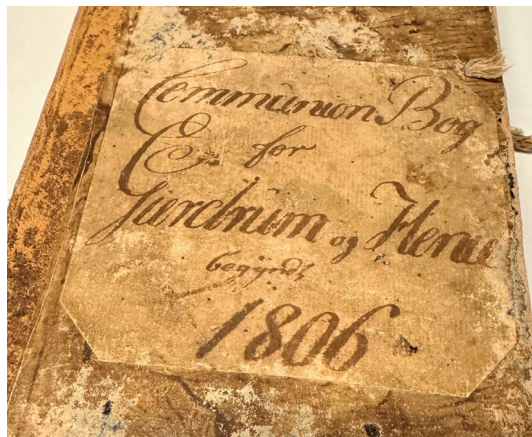 Communion Bog
for
Gierdrum og Heni
begyndt
1806